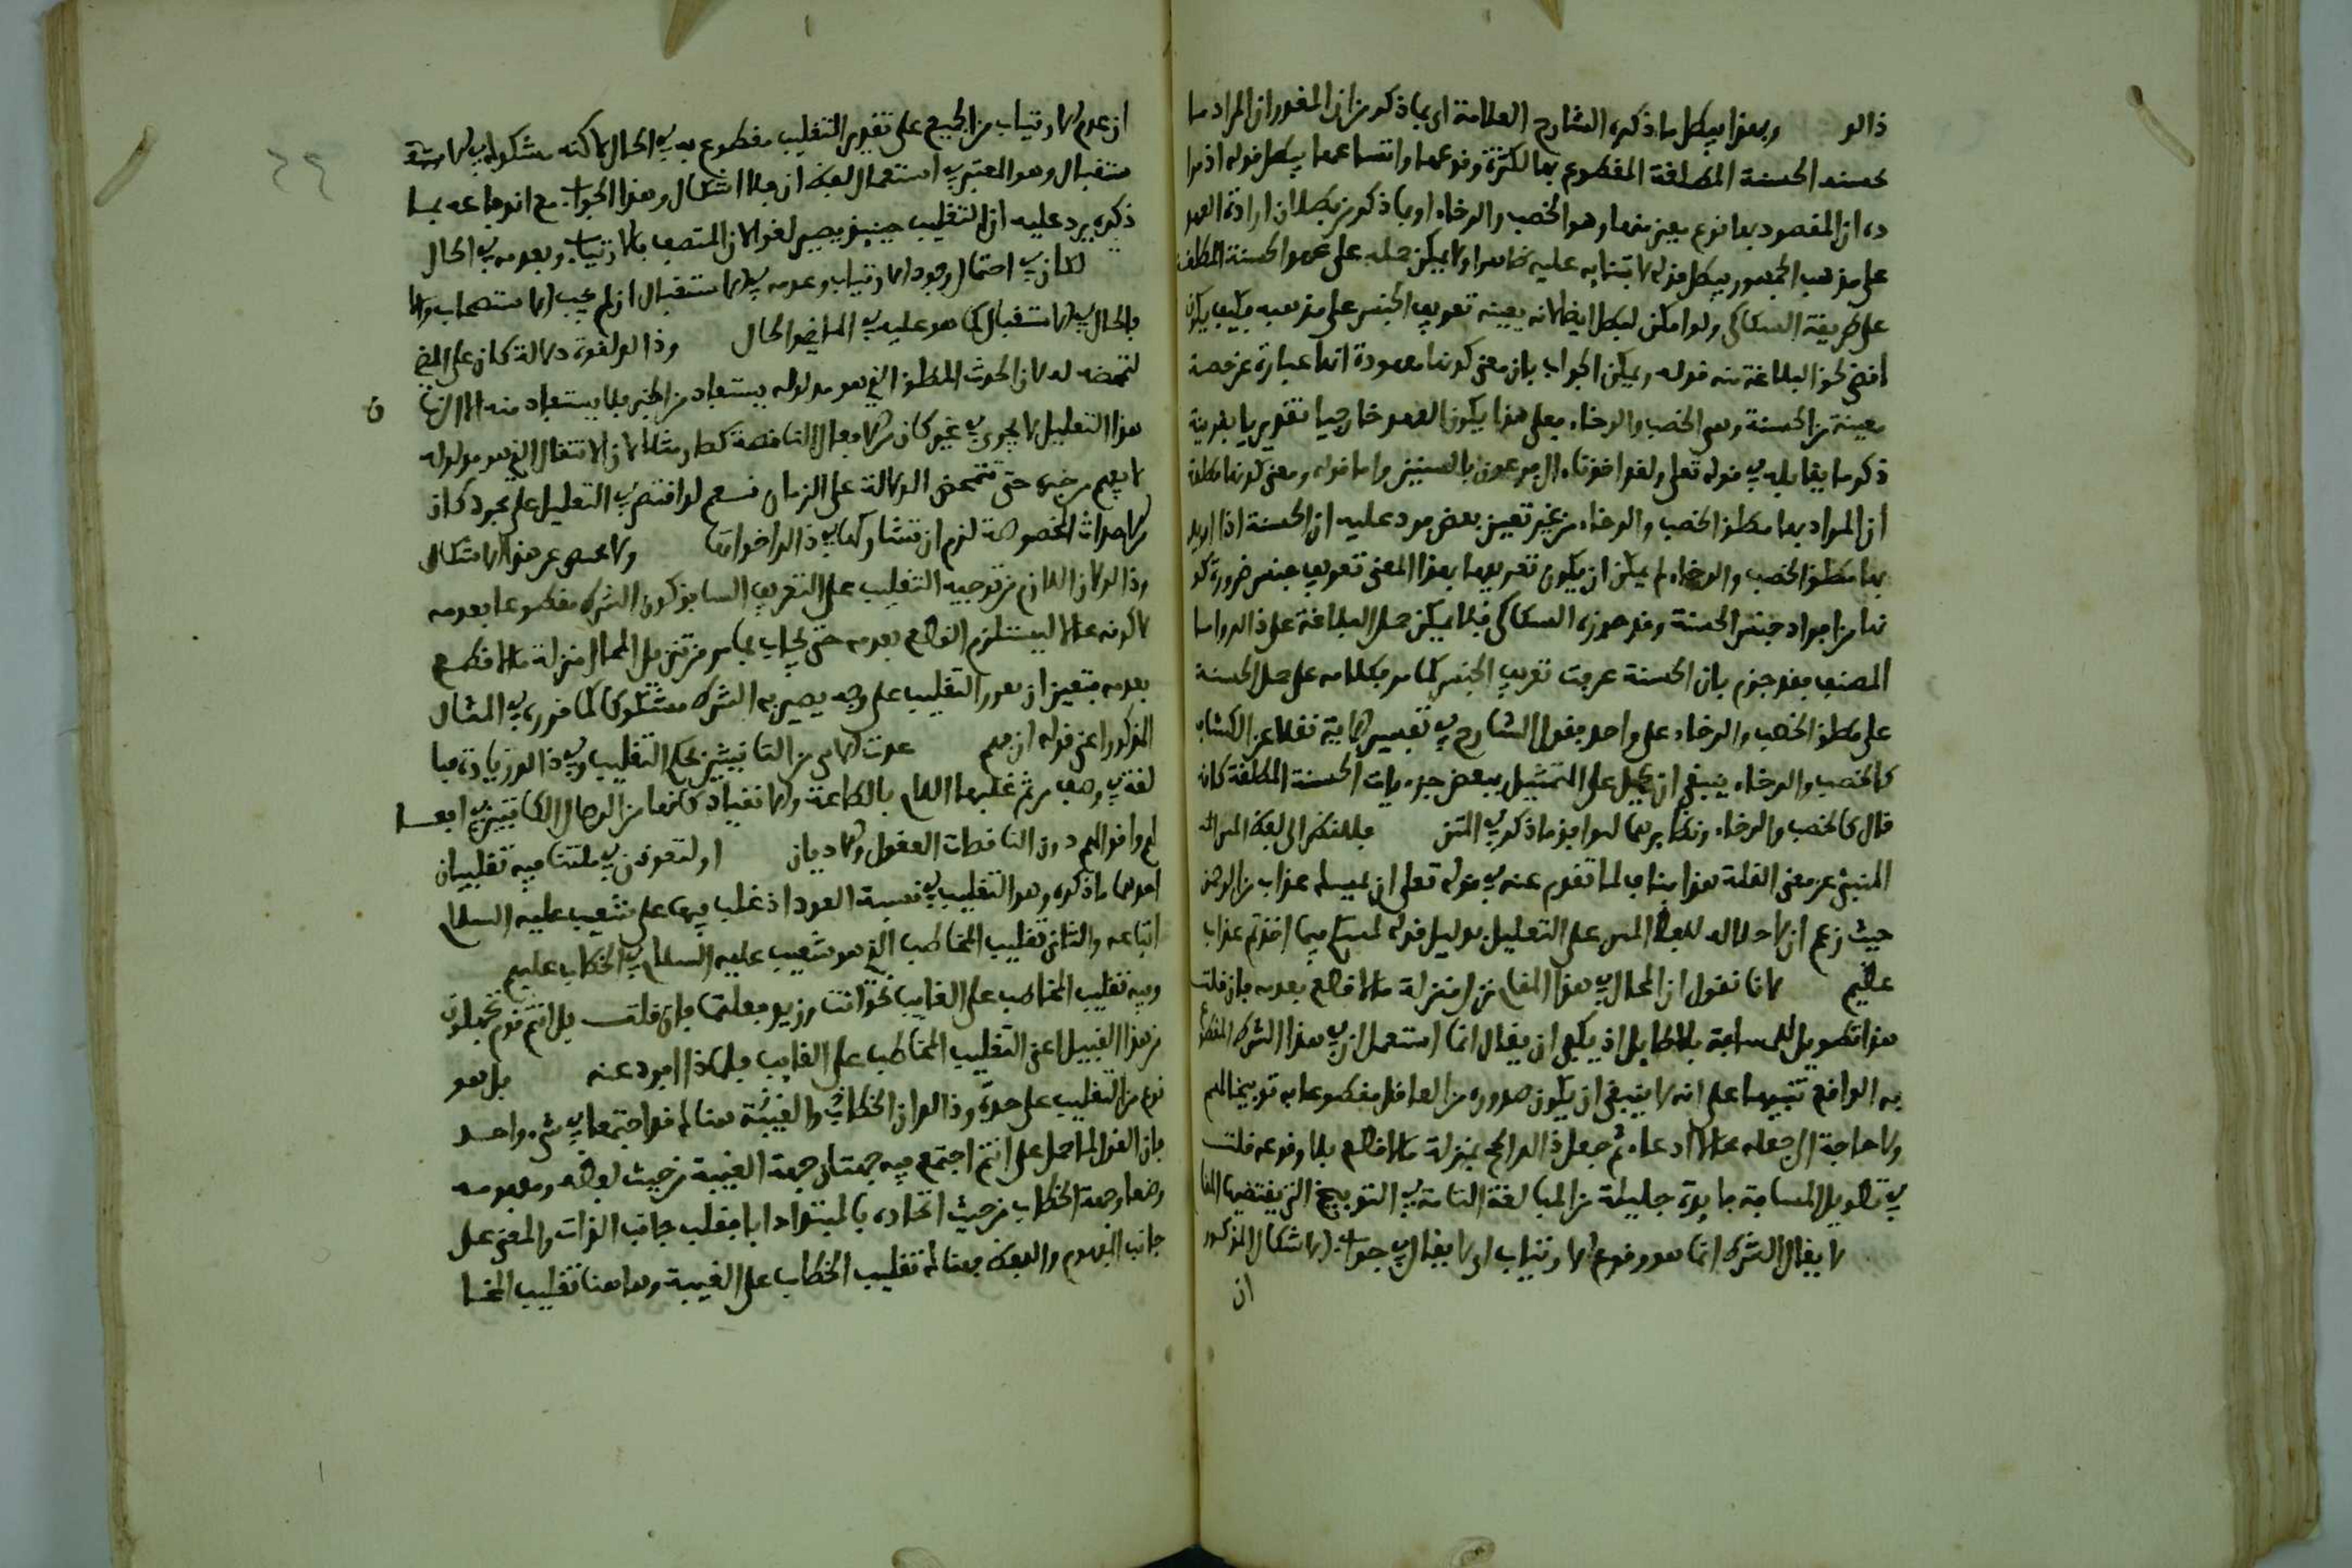 ذالو وبهذا يبطل ما ذكره الشارح العلامة اي بما ذكر من ان المقدور ان المراد بها
الحسنة المطلقة المقطوع بها لكثرة وقوعها واتساعها يبطل قوله اذ مرا
ده ان المقصود بها نوع معين منها وهو الخصب والرخاء او بما ذكر من بطلان ارادة العهد
على مذهب الجمهور يبطل قوله لا بتنايه عليه ظاهرا ولا يمكن حمله على عهد الحسنة المطلقة
على طريقة السكاكي ولو امكن لبطل ايضا لانه بعينه تعريف الجنس على مذهبه فكيف يكون
اقضى لحق البلاغة منه قوله ويمكن الجواب بان معنى كونها معهودة انها عبارة عن حصة
معينة من الحسنة وهي الخصب والرخاء فعلى هذا يكون العهد خارجيا تقديريا بقرينة
ذكر ما يقابله في قوله تعلى ولقد اخذنا ءال فرعون بالسنين واما قوله ومعنى كونها مطلقة
ان المراد بها مطلق الخصب والرخاء من غير تعيين بعض فيرد عليه ان الحسنة اذا اريد
بها مطلق الخصب والرخاء لم يمكن ان يكون تعريفها بهذا المعنى تعريف جنس ضرورة كو
نها من افراد جنس الحسنة وقد جوزه السكاكي فلا يمكن حمل البلاغة على ذالو واما
المصنف فقد جزم بان الحسنة عرفت تعريف الجنس كما مر فكلامه على حمل الحسنة
على مطلق الخصب والرخاء على واحد فقول الشارح في تفسير الاية نقلا عن الكشاف
كالخصب والرخاء ينبغي ان يحمل على التمثيل ببعض جزءيات الحسنة المطلقة كانه
قال كالخصب والرخاء ونظايرهما ليوافق ما ذكر في المتن فللنظر الى لفظ المس الخ
المنبئ عن معنى القلة هذا مناف لما تقدم عنه في قوله تعلى ان يمسك عذاب من الرحمن
حيث زعم ان لا دلالة للفظ المس على التعليل بدليل قوله لمسكم فيما اخذتم عذاب
عظيم لانا نقول ان المحال في هذا المقام نزل منزلة ما لا قطع بعدمه فان قلت
هذا تطويل للمسافة بلا طايل اذ يكفي ان يقال انما استعمل ان في هذا الشرط المقطوع
به الواقع تنبيها على انه لا ينبغي ان يكون صدوره من العاقل مقطوعا به توبيخا لهم
ولا حاجة الى جعله محالا ادعاء ثم جعل ذالو المحال بمنزلة ما لا قطع بلا وقوعه قلت
في تطويل المسافة فايدة جليلة من المبالغة التامة في التوبيخ التي يقتضيها المقا
لا يقال الشرط انما هو وقوع الارتياب اي لا يقال في جواب الاشكال المذكور
ان
ان عدم الارتياب من الجميع على تقدير التغليب مقطوع به في الحال لاكنه مشكوك في الاستقـ
ستقبال وهو المعتبر في استعمال لفظ ان فلا اشكال وهذا الجواب مع اندفاعه بما
ذكره يرد عليه ان التغليب حينئذ يصير لغوا لان المتصف بالارتياب وبعدمه في الحال
لكان في احتمال وجود الارتياب وعدمه في الاستقبال ان لم يجب الاستصحاب والا
فالحال في الاستقبال كما هو عليه في الماضي والحال وذالو لقوة دلالة كان على المضي
لتمحضه له لان الحدث المطلق الذي هو مدلوله يستفاد من الخبر فلا يستفاد منه الا الزما ن
هذا التعليل لا يجري في غير كان من الافعال الناقصة كصار مثلا لان الانتقال الذي هو مدلوله
لا يفهم من خبره حتى تتمحض الدلالة على الزمان نعم لو اقتصر في التعليل على مجرد كان
الاحداث المخصوصة لزم ان تشاركها في ذالو اخواتها ولا مخلص عن هذا الاشكال
وذالو لان اللازم من توجيه التغليب على التقرير السابق كون الشرط مقطوعا بعدمه
لا كونه محالا ليستلزم القطع بعدمه حتى يجاب بما مر من تنزيل المحال منزلة ما لا قطع
بعدمه فتعين ان يقرر التغليب على وجه يصير به الشرط مشكوكا كما قرره في المثال
المذكور اعني قوله ان قمـ عدت الانثى من القانتين بحكم التغليب في ذالو زيادة مبا
لغة في وصف مريم عليها السلام بالطاعة والانقياد كانها من الرجال الكاملين في افعا
لهم واقوالهم دون الناقصات العقول والاديان او لتعودن في ملتنا فيه تغليبان
احدهما ما ذكره وهو التغليب في نسبة العود اذ غلب فيها على شعيب عليه السلام
اتباعه والثاني تغليب المخاطب الذي هو شعيب عليه السلام في الخطاب عليهم
وفيه تغليب المخاطب على الغايب نحو انت وزيد فعلتما فان قلت بل انتم قوم تجهلون
من هذا القبيل اعني التغليب المخاطب على الغايب فلماذا افرد عنه بل هو
نوع من التغليب على حدة وذالو ان الخطاب والغيبة هنالك قد اجتمعا في شيء واحد
فان القول لما حمل على انتم اجتمع فيه جهتان جهة الغيبة من حيث لفظه ومفهومه
وضعا وجهة الخطاب من حيث اتحاده بالمبتدا ذاتا فغلب جانب الذات والمعنى على
جانب المفهوم واللفظ فهنالك تغليب الخطاب على الغيبة وهاهنا تغليب المخا